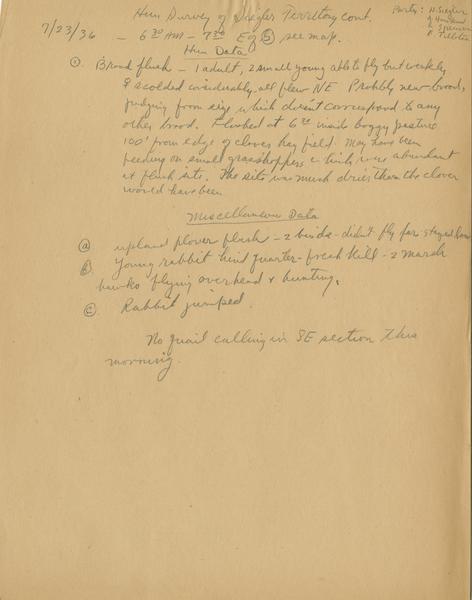 Hun Survey of Siegler Territory cont.
Party: H. Siegler
7/23/36 - 6 30 AM - 7 30 Eg (5) see map.
Hun Data
① Brood flush - 1 adult, 2 small young able to fly but weakly
& scolded considerably, all flew NE. Probably new brood,
judging from size which doesn't correspond to any
other brood. Flushed at 6 30 inside boggy pasture
100' from edge of clover hay field. May have been
feeding on small grasshoppers which were abundant
at flush site. The site was much drier than the clover
would have been
Miscellaneous Data
ⓐ upland plover flush - 2 birds - didn't fly far stayed
ⓑ Young rabbit hind quarter - fresh kill - 2 marsh
hawks flying overhead & hunting.
ⓒ Rabbit jumped.
No quail calling in SE section this
morning.